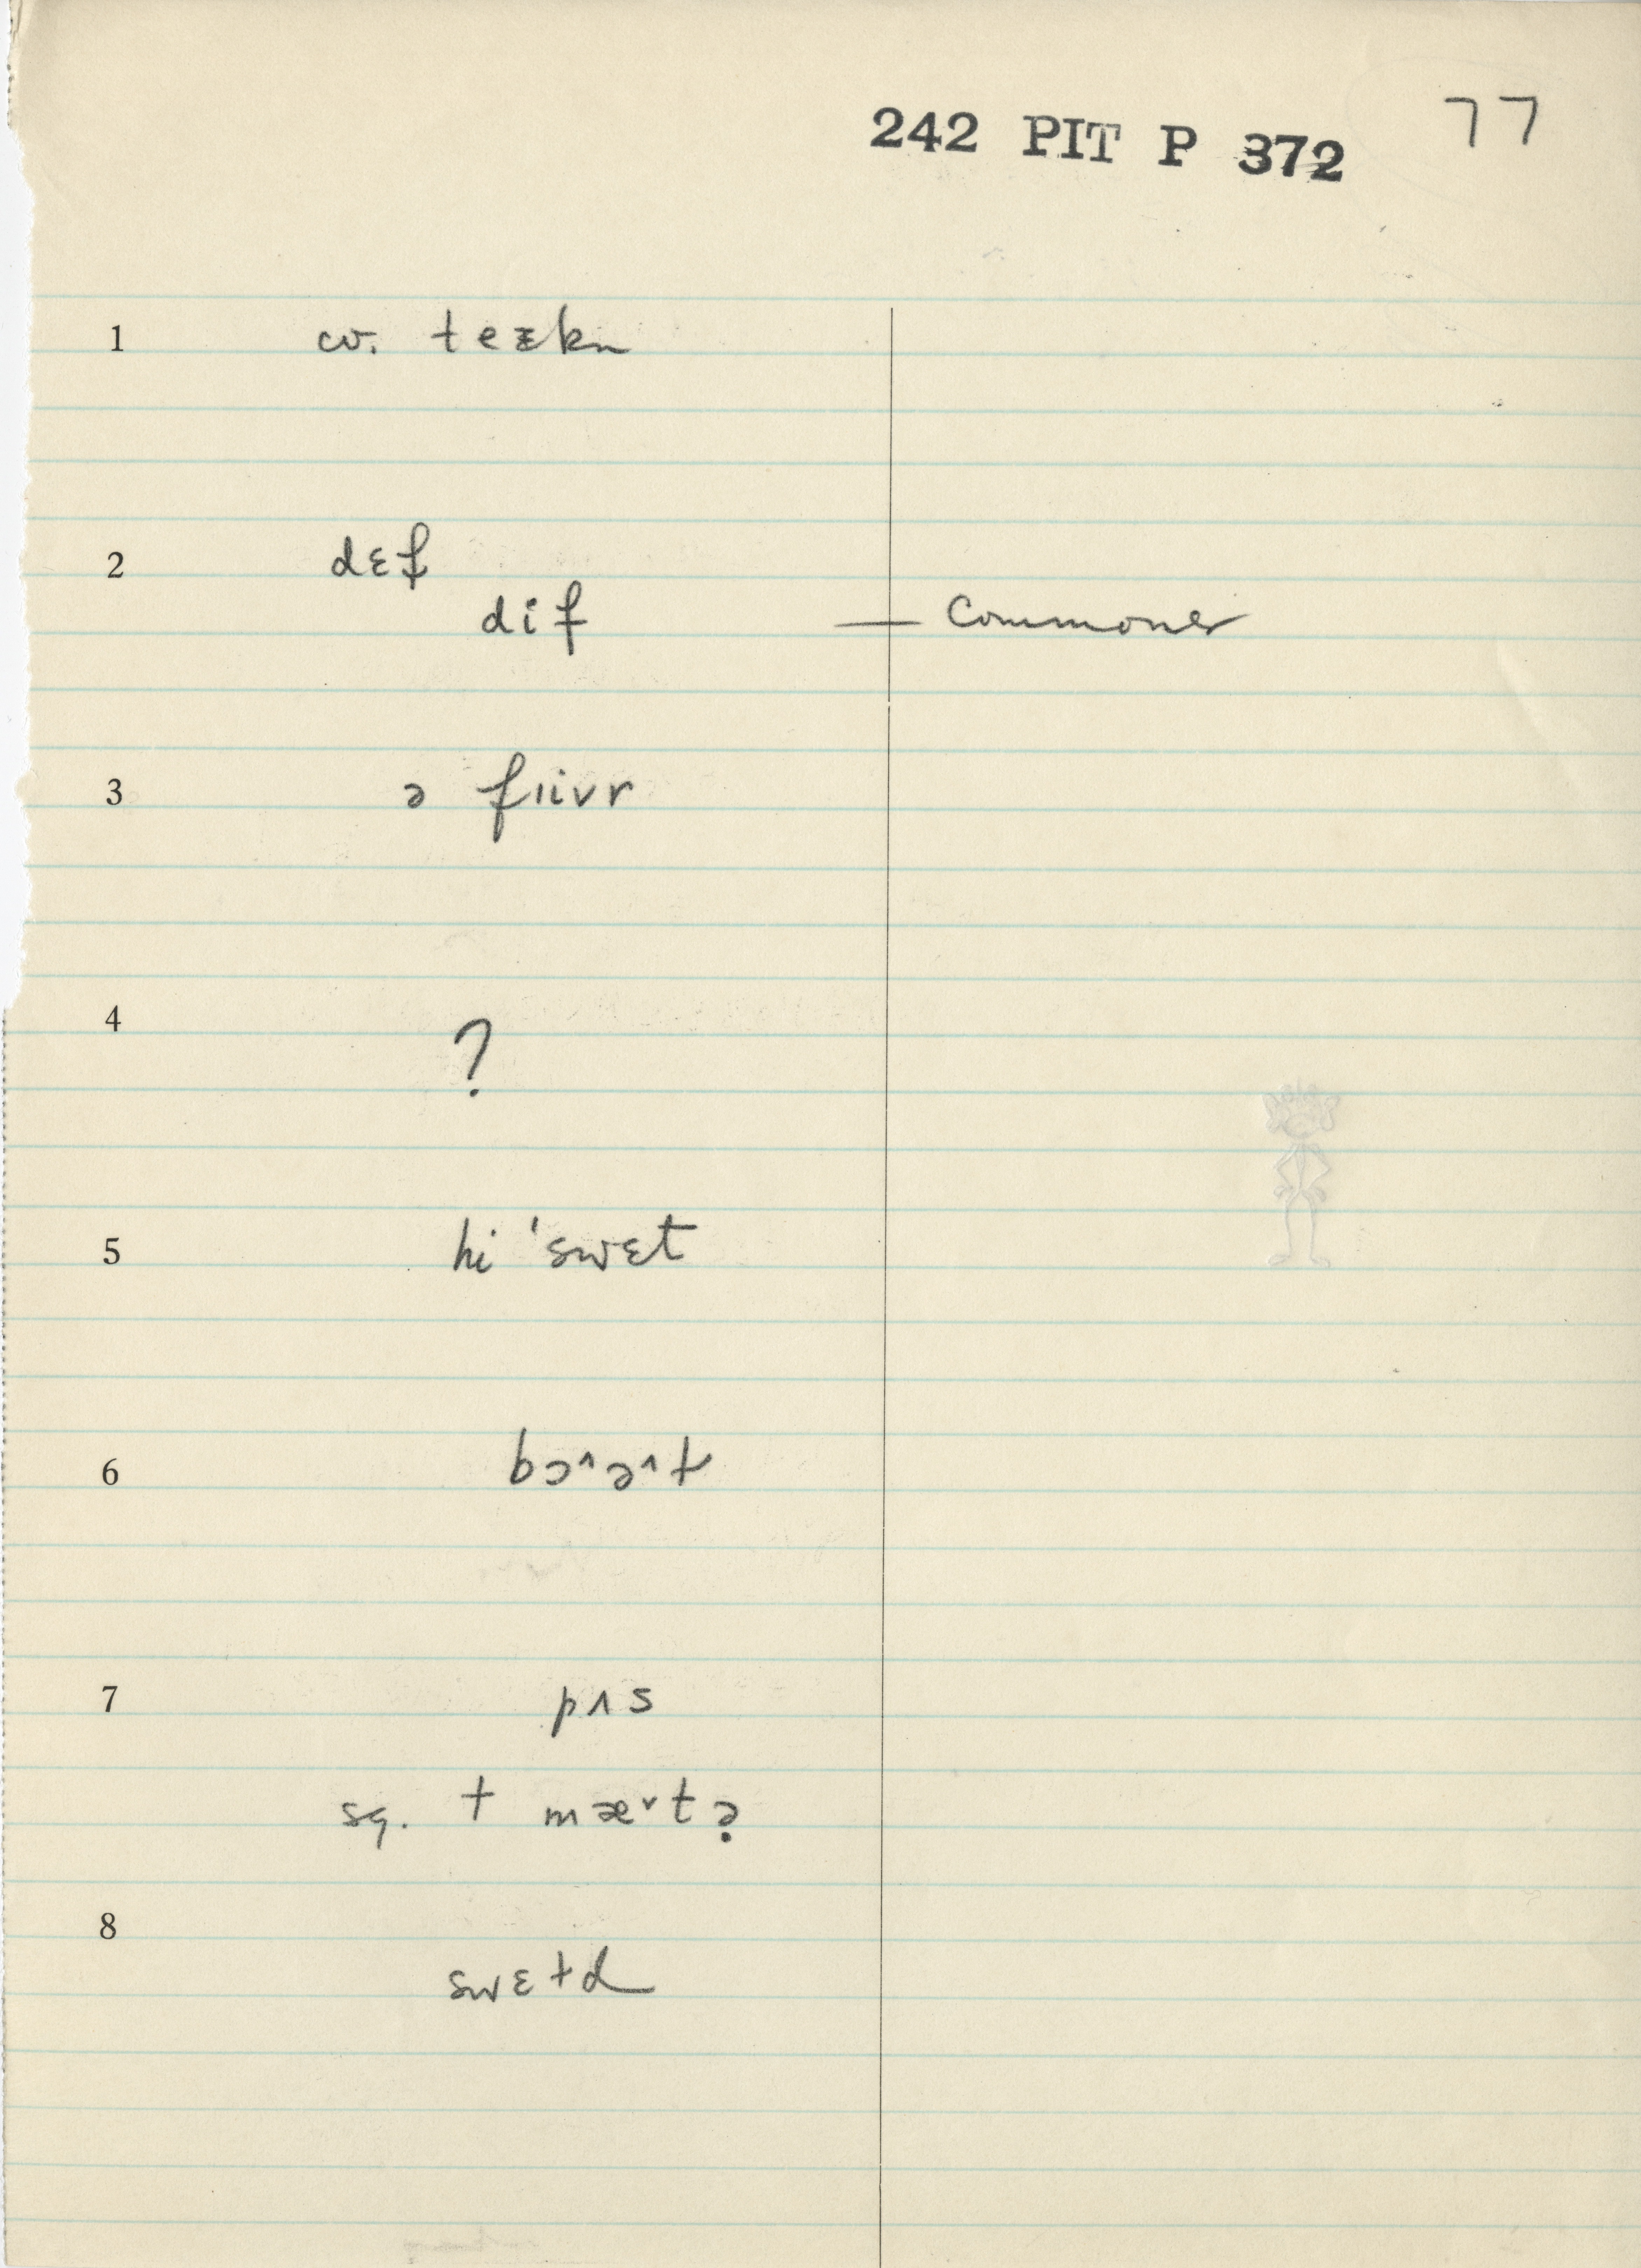 242 PIT P 372 77
1 cv. teᵻkn
2 dɛf
dif — Commoner
3 ə fɪivr
4 ?
5 hi 'swɛt
6 bɔ˄ə˄t
7 pʌs
sq. + mæ˅t?
8 swɛtd